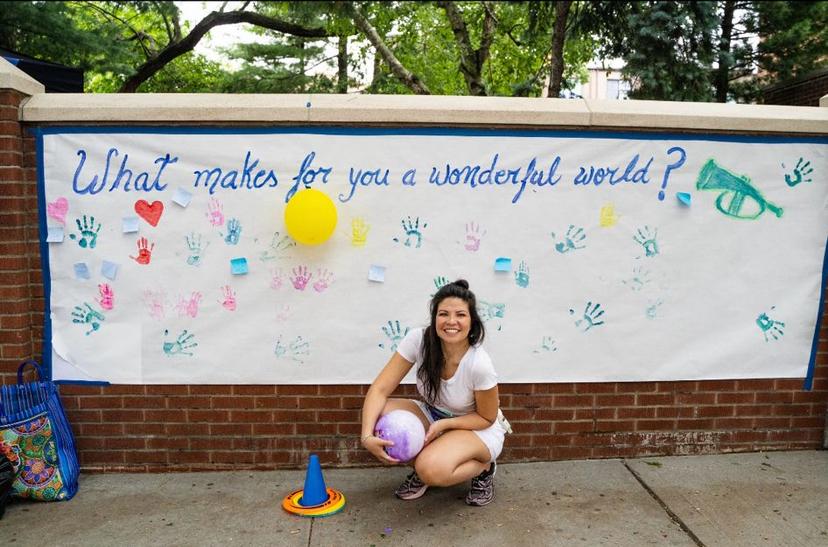 What makes for you a wonderful world?